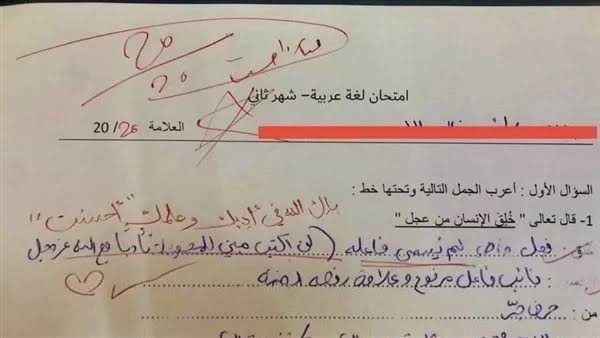 20
20
امتحان لغة عربية – شهر ثاني
العلامة 20/20
السؤال الأول : أعرب الجمل التالية وتحتها خط :
بارك الله في أدبك وعلمك "أحسنت"
1- قال تعالى " خُلِقَ الإنسان من عجل "
فعل ماضي لم يسمى فاعله (لن أكتب مبني للمجهول تأدباً مع الله عز وجل
نائب فاعل مرفوع وعلامة رفعه الضمة
من : حرف جرّ